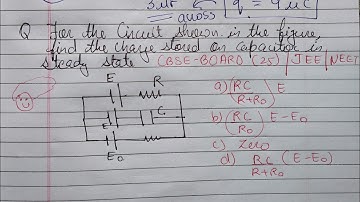 3μF
gauss q = 4μC
Q for the Circuit shown in the figure,
find the charge stored on capacitor in
steady state (BSE-BOARD (25) | JEE | NEET
E R
E C
E₀
a) (RC / R+R₀) E
b) (RC / R₀) E-E₀
c) Zero
d) RC / R+R₀ (E-E₀)